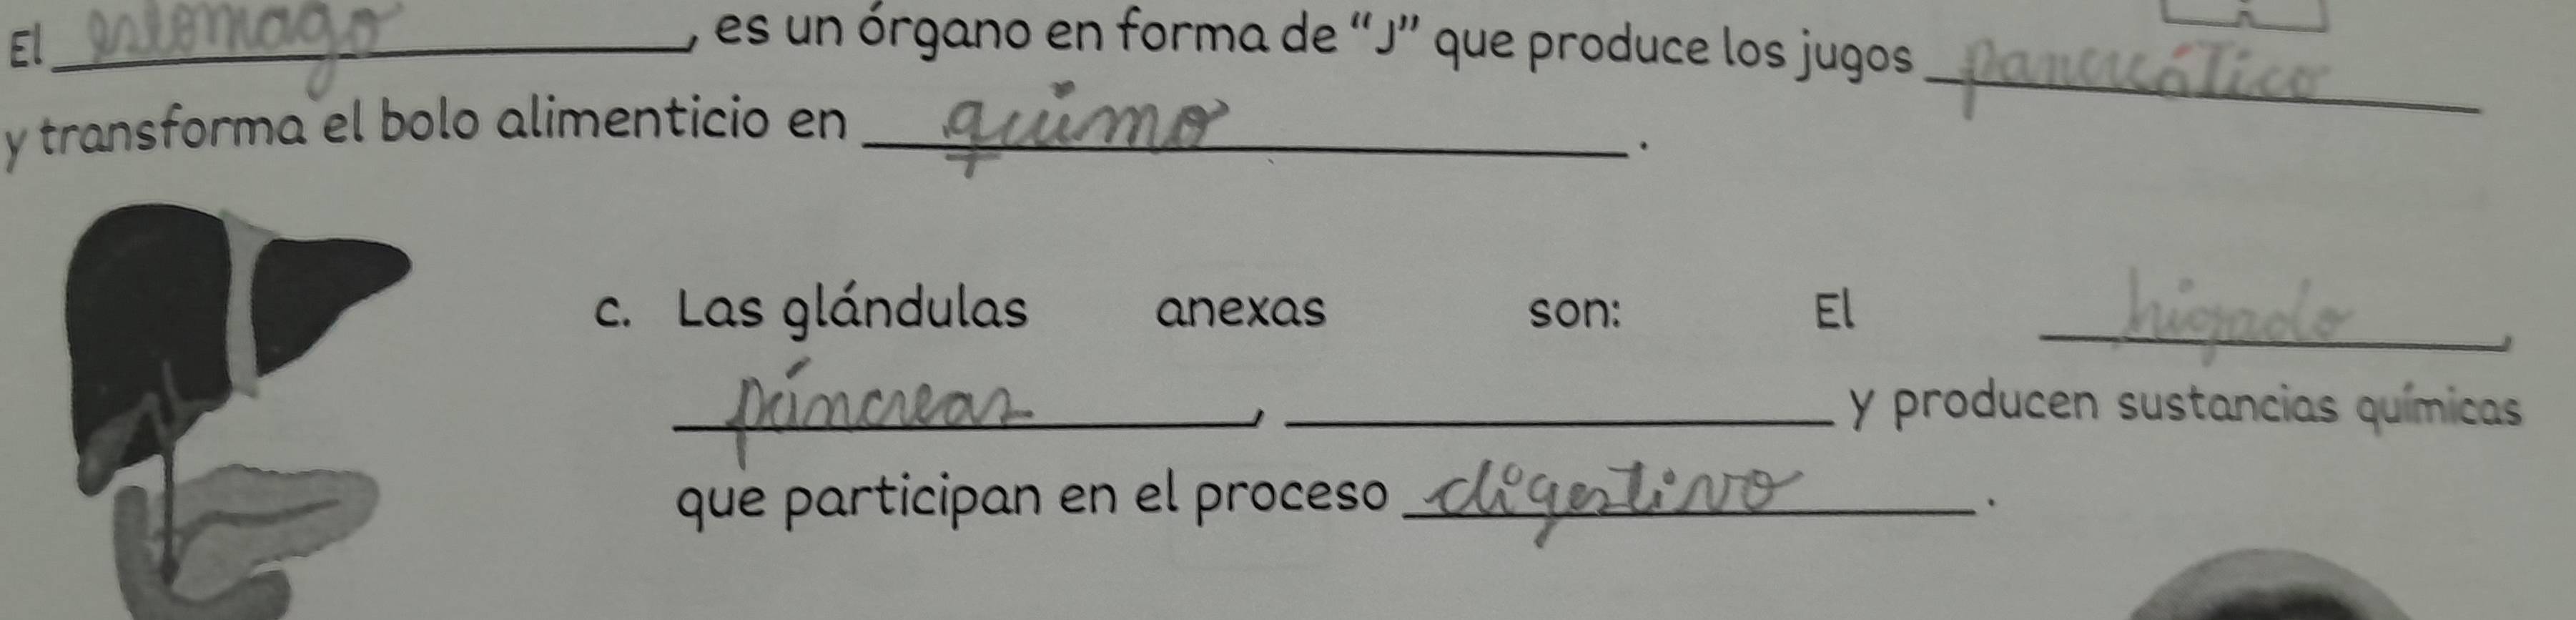 El estomago, es un órgano en forma de “J” que produce los jugos pancreático
y transforma el bolo alimenticio en quimo.
c. Las glándulas anexas son: El higado,
páncreas, ____ y producen sustancias químicas
que participan en el proceso digestivo.